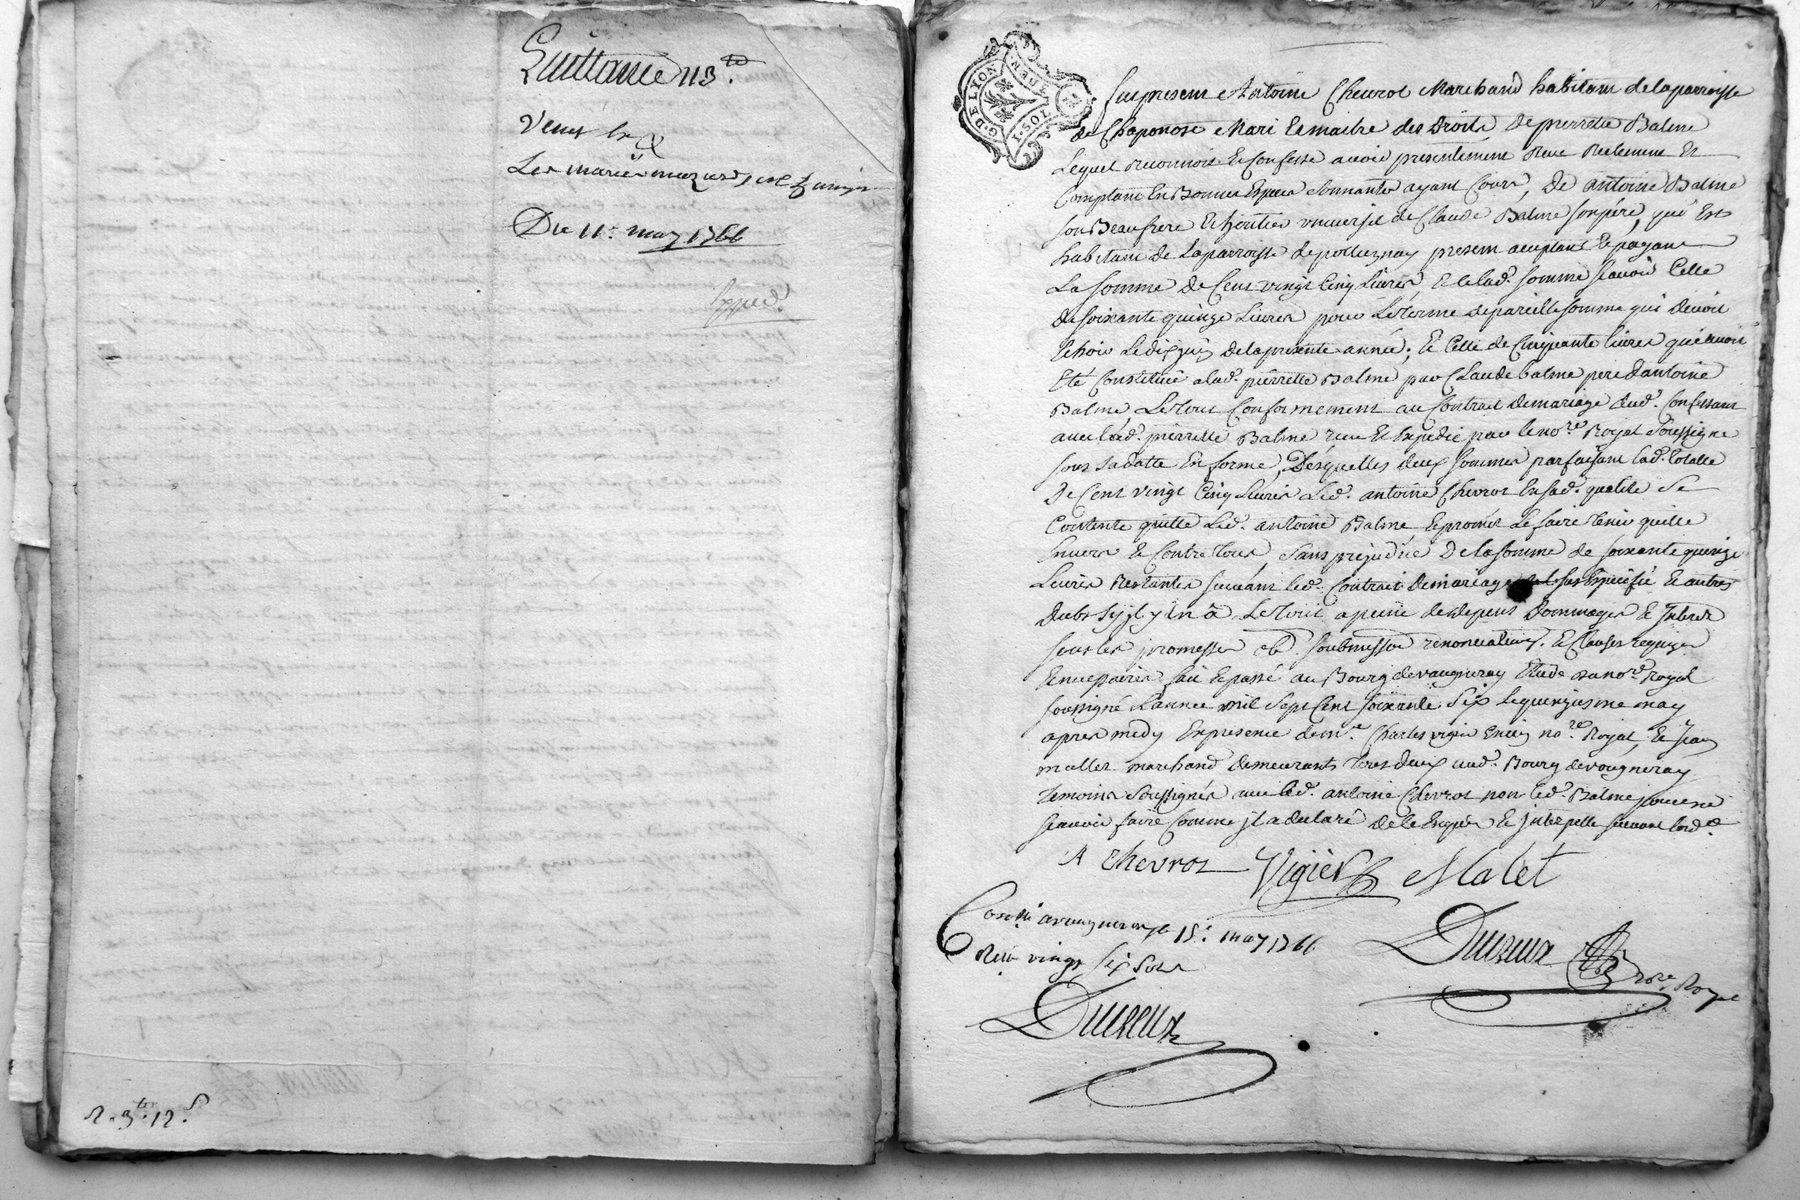 Quittance 113.lt
Veuve
Les mariés
Du 11.e may 1766
Exped.
R. 3.lt 12.s
G. DE LYON
Fut present Antoine Chevrot Marchand habitant delaparroisse
de Chaponost Mari Et maitre des Droits de pierrette Balme
Lequel reconnoit Et confesse avoir presentement Receu Reelement Et
Comptant En Bonnes Especes sonnantes ayant Cours, De antoine Balme
son Beaufrere Et heritier universel de Claude Balme son père, qué Est
habitant de Laparroisse depollieynay present acceptant Et payant
La somme De Cent vingt Cinq Livres, Et lad. somme scavoir Celle
de soixante quinze Livres pour Le terme depareille somme qui devoit
Echoir Le dix juin delapresente année, Et Celle de Cinquante livres qué avoit
Eté Constituée alad. pierrette Balme par Claude balme pere d'antoine
Balme Le tout Conformement au Contrait demariage dud. Confessant
avec lad. pierrette Balme receu Et Expedié par le no.re Royal Soussigné
sous sadatte En forme, Desquelles deux sommes parfaisant lad. totalle
De Cent vingt Cinq Livres Led. antoine Chevrot En sad. qualité Se
Contente quitte Led. antoine Balme Et promet Le faire tenir quitte
Envers Et Contre tous, sans prejudice De la somme de soixante quinze
Livres Restantes suivant led. Contrait Demariage sus Especifié Et autres
Le tout a peine de tous depens Dommages Et Interets
sous les promesses soubmissions renonciations Et Clauses requises
Et necessaires fait Et passé au Bourg devaugneray Etude du no.re Royal
soussigné L'année mil sept Cent soixante Six Le quinzieme may
apres midy En presence de m.e Charles vigier Encien no.re Royal, Et Jean
mallet marchand demeurants tous deux aud. Bourg devaugneray
temoins Soussignés avec led. antoine Chevrot non led. Balme pour ne
scavoir faire Comme jl a declaré De ce Enquis Et Interpellé suivant lord.e
A Chevrot Vigier Malet
Con.llé avaugneray le 15.e may 1766
Receu vingt Six Sols
Ducreux
Ducreux No.re Royal